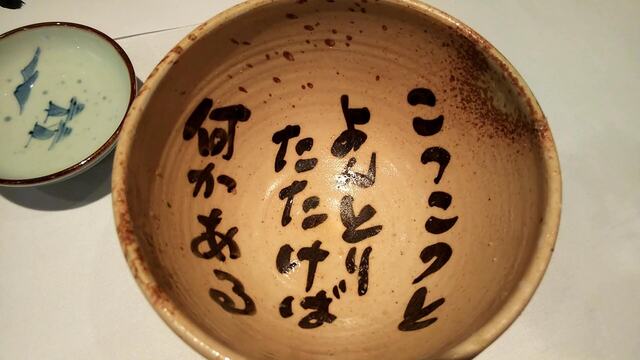 こつこつと
よんとり
たたけば
何かある